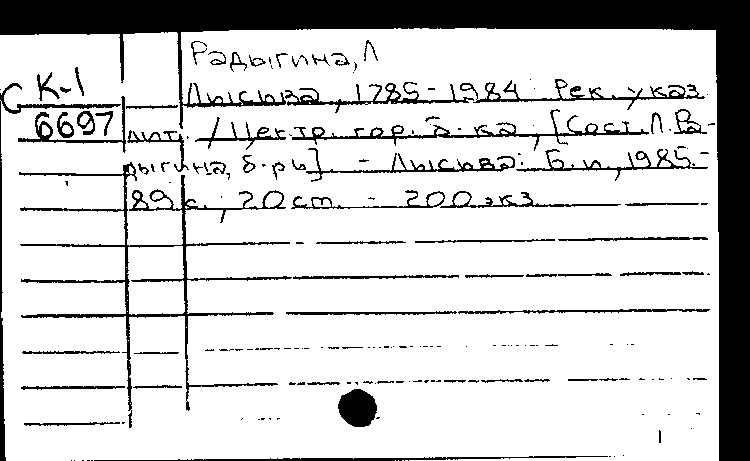 Радыгина, Л
С К-1
6697
Лысьва, 1785-1984: Рек. указ.
лит. / Центр. гор. б-ка; [Сост. Л. Ра-
дыгина, б-рь]. - Лысьва: Б.и., 1985.-
89 с.; 20 см. - 200 экз.
1